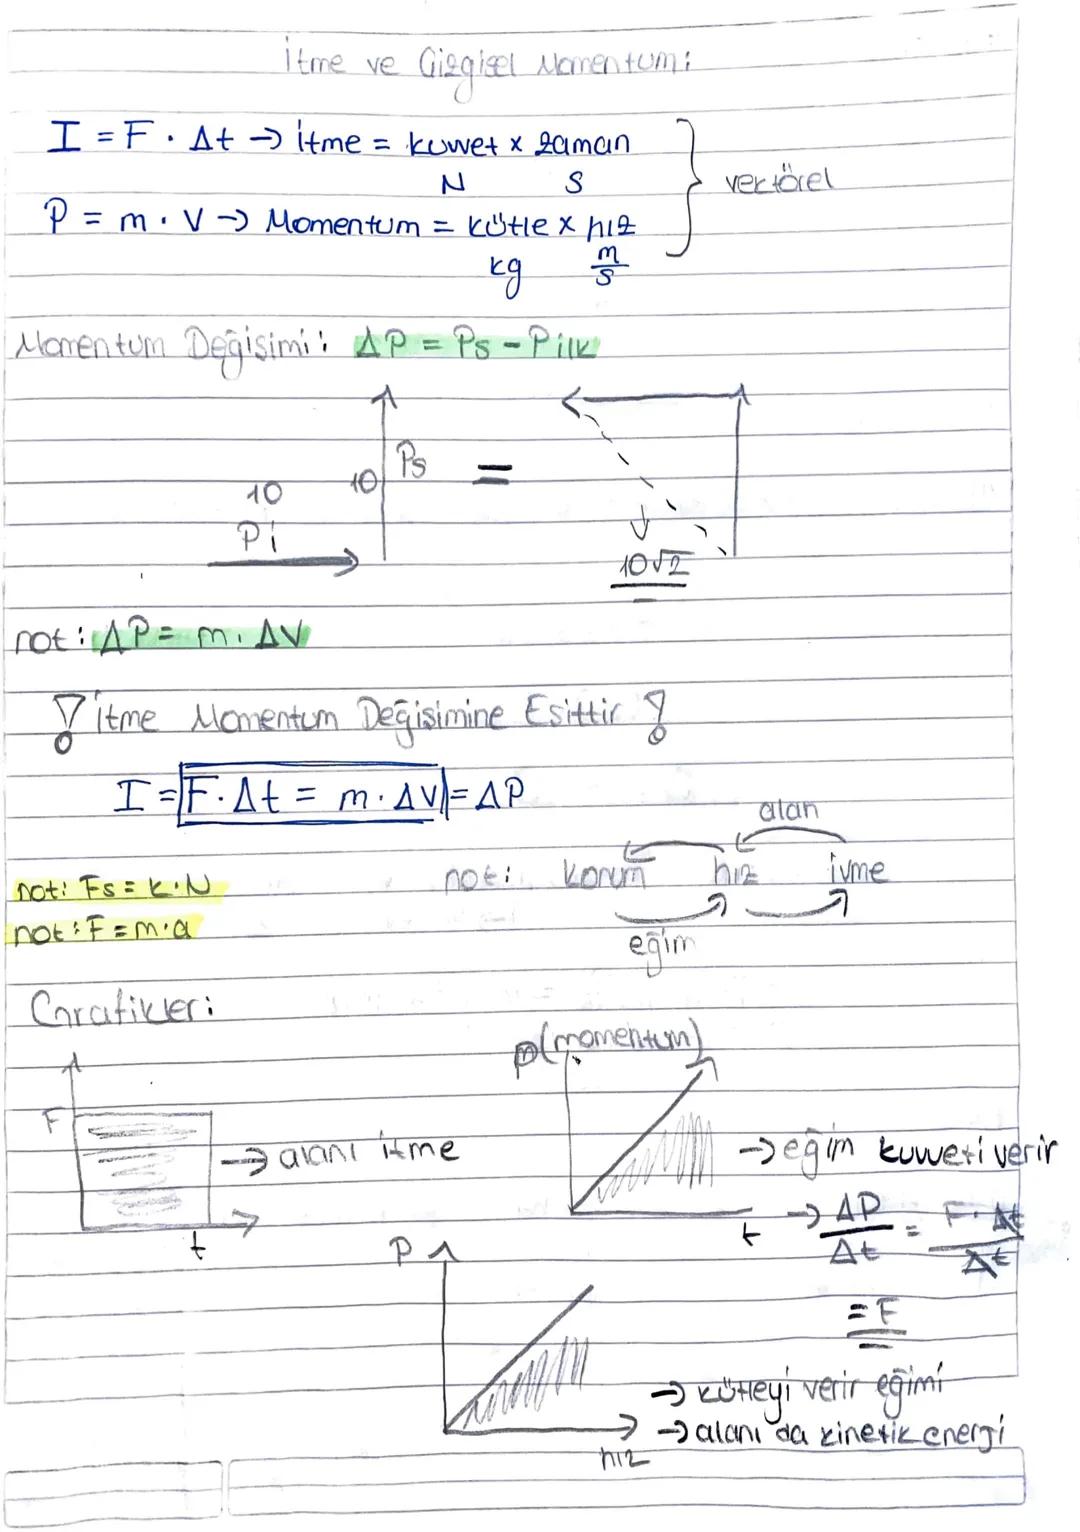 İtme ve Çizgisel Momentum:
I = F . Δt → itme = kuvvet x zaman
N S
vektörel
P = m . V → Momentum = kütle x hız
kg m/s
Momentum Değişimi: ΔP = Ps - Pilk
10
Pi
10
Ps
=
10√2
not: ΔP = m. ΔV
! İtme Momentum Değişimine Eşittir !
I = F. Δt = m. ΔV = ΔP
alan
not: Fs = k.N
not: konum hız ivme
not: F = m.a
eğim
Grafikler:
p(momentum)
F
→ alanı itme
→ eğim kuvveti verir
t
t
→ ΔP/Δt = F. Δt/Δt
= F
P
→ kütleyi verir eğimi
→ alanı da kinetik enerji
hız